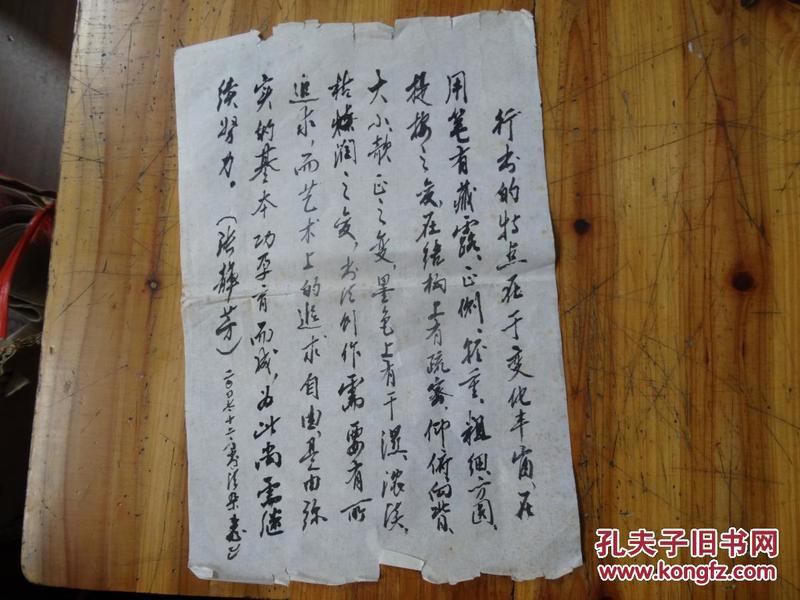 行书的特点在于变化丰富、在
用笔有藏露、正侧、轻重、粗细、方圆、
提按之变、在结构上有疏密、仰俯、向背、
大小、欹正之变、墨色上有干湿、浓淡、
枯燥润之变，书法创作需要有所
追求，而艺术上的追求自由，是由
实的基本功孕育而成，为此尚需继
续努力。（张静芳）二〇〇七、十二、
孔夫子旧书网
www.kongfz.com